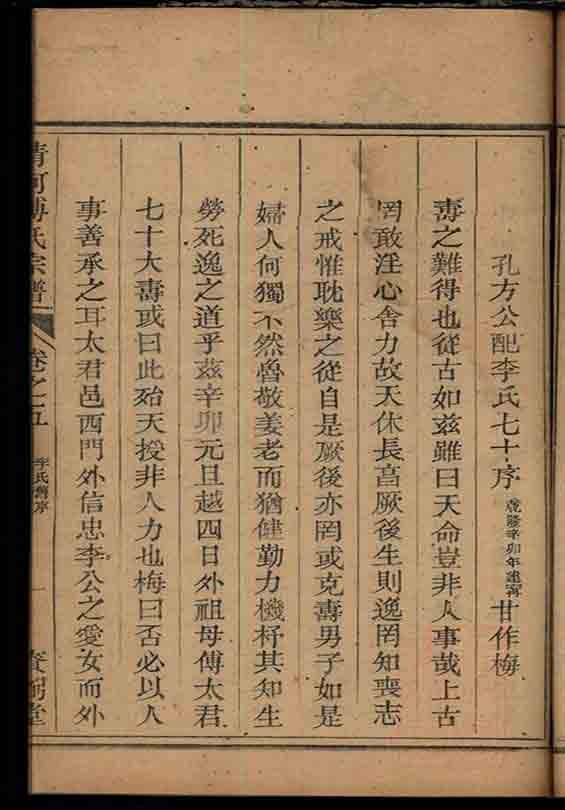 孔方公配李氏七十序 乾隆辛卯年進 甘作梅
壽之難得也從古如茲雖曰天命豈非人事哉上古
罔敢淫心舍力故天休長畗厥後生則逸罔知喪志
之戒惟耽樂之從自是厥後亦罔或克壽男子如是
婦人何獨不然魯敬姜老而猶健勤力機杼其知生
勞死逸之道乎茲辛卯元旦越四日外祖母傅太君
七十大壽或曰此殆天授非人力也梅曰否必以人
事善承之耳太君邑西門外信忠李公之愛女而外
清河傅氏宗譜 卷之五 李氏壽序 一 堂